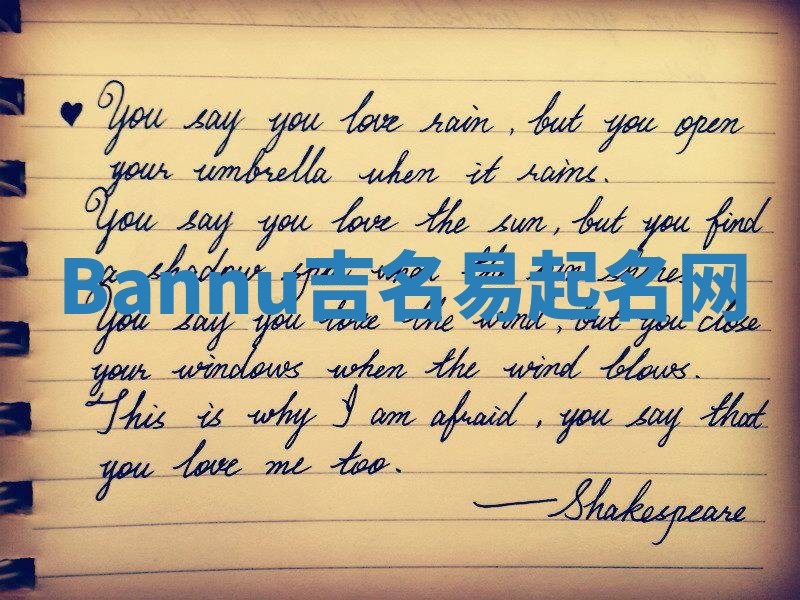 ♥ You say you love rain, but you open
your umbrella when it rains.
You say you love the sun, but you find
a shadow spot when the sun shines.
Bannu吉名易起名网
You say you love the wind, but you close
your windows when the wind blows.
This is why I am afraid, you say that
you love me too.
—Shakespeare